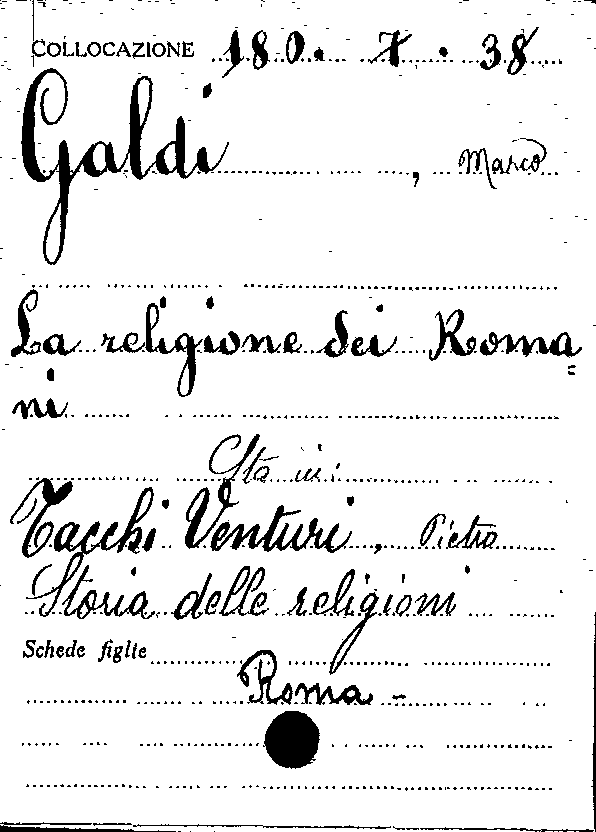 COLLOCAZIONE 180. 7. 38
Galdi, Marco
La religione dei Roma=
ni
Sta in:
Tacchi Venturi, Pietro
Storia delle religioni
Schede figlie
Roma -